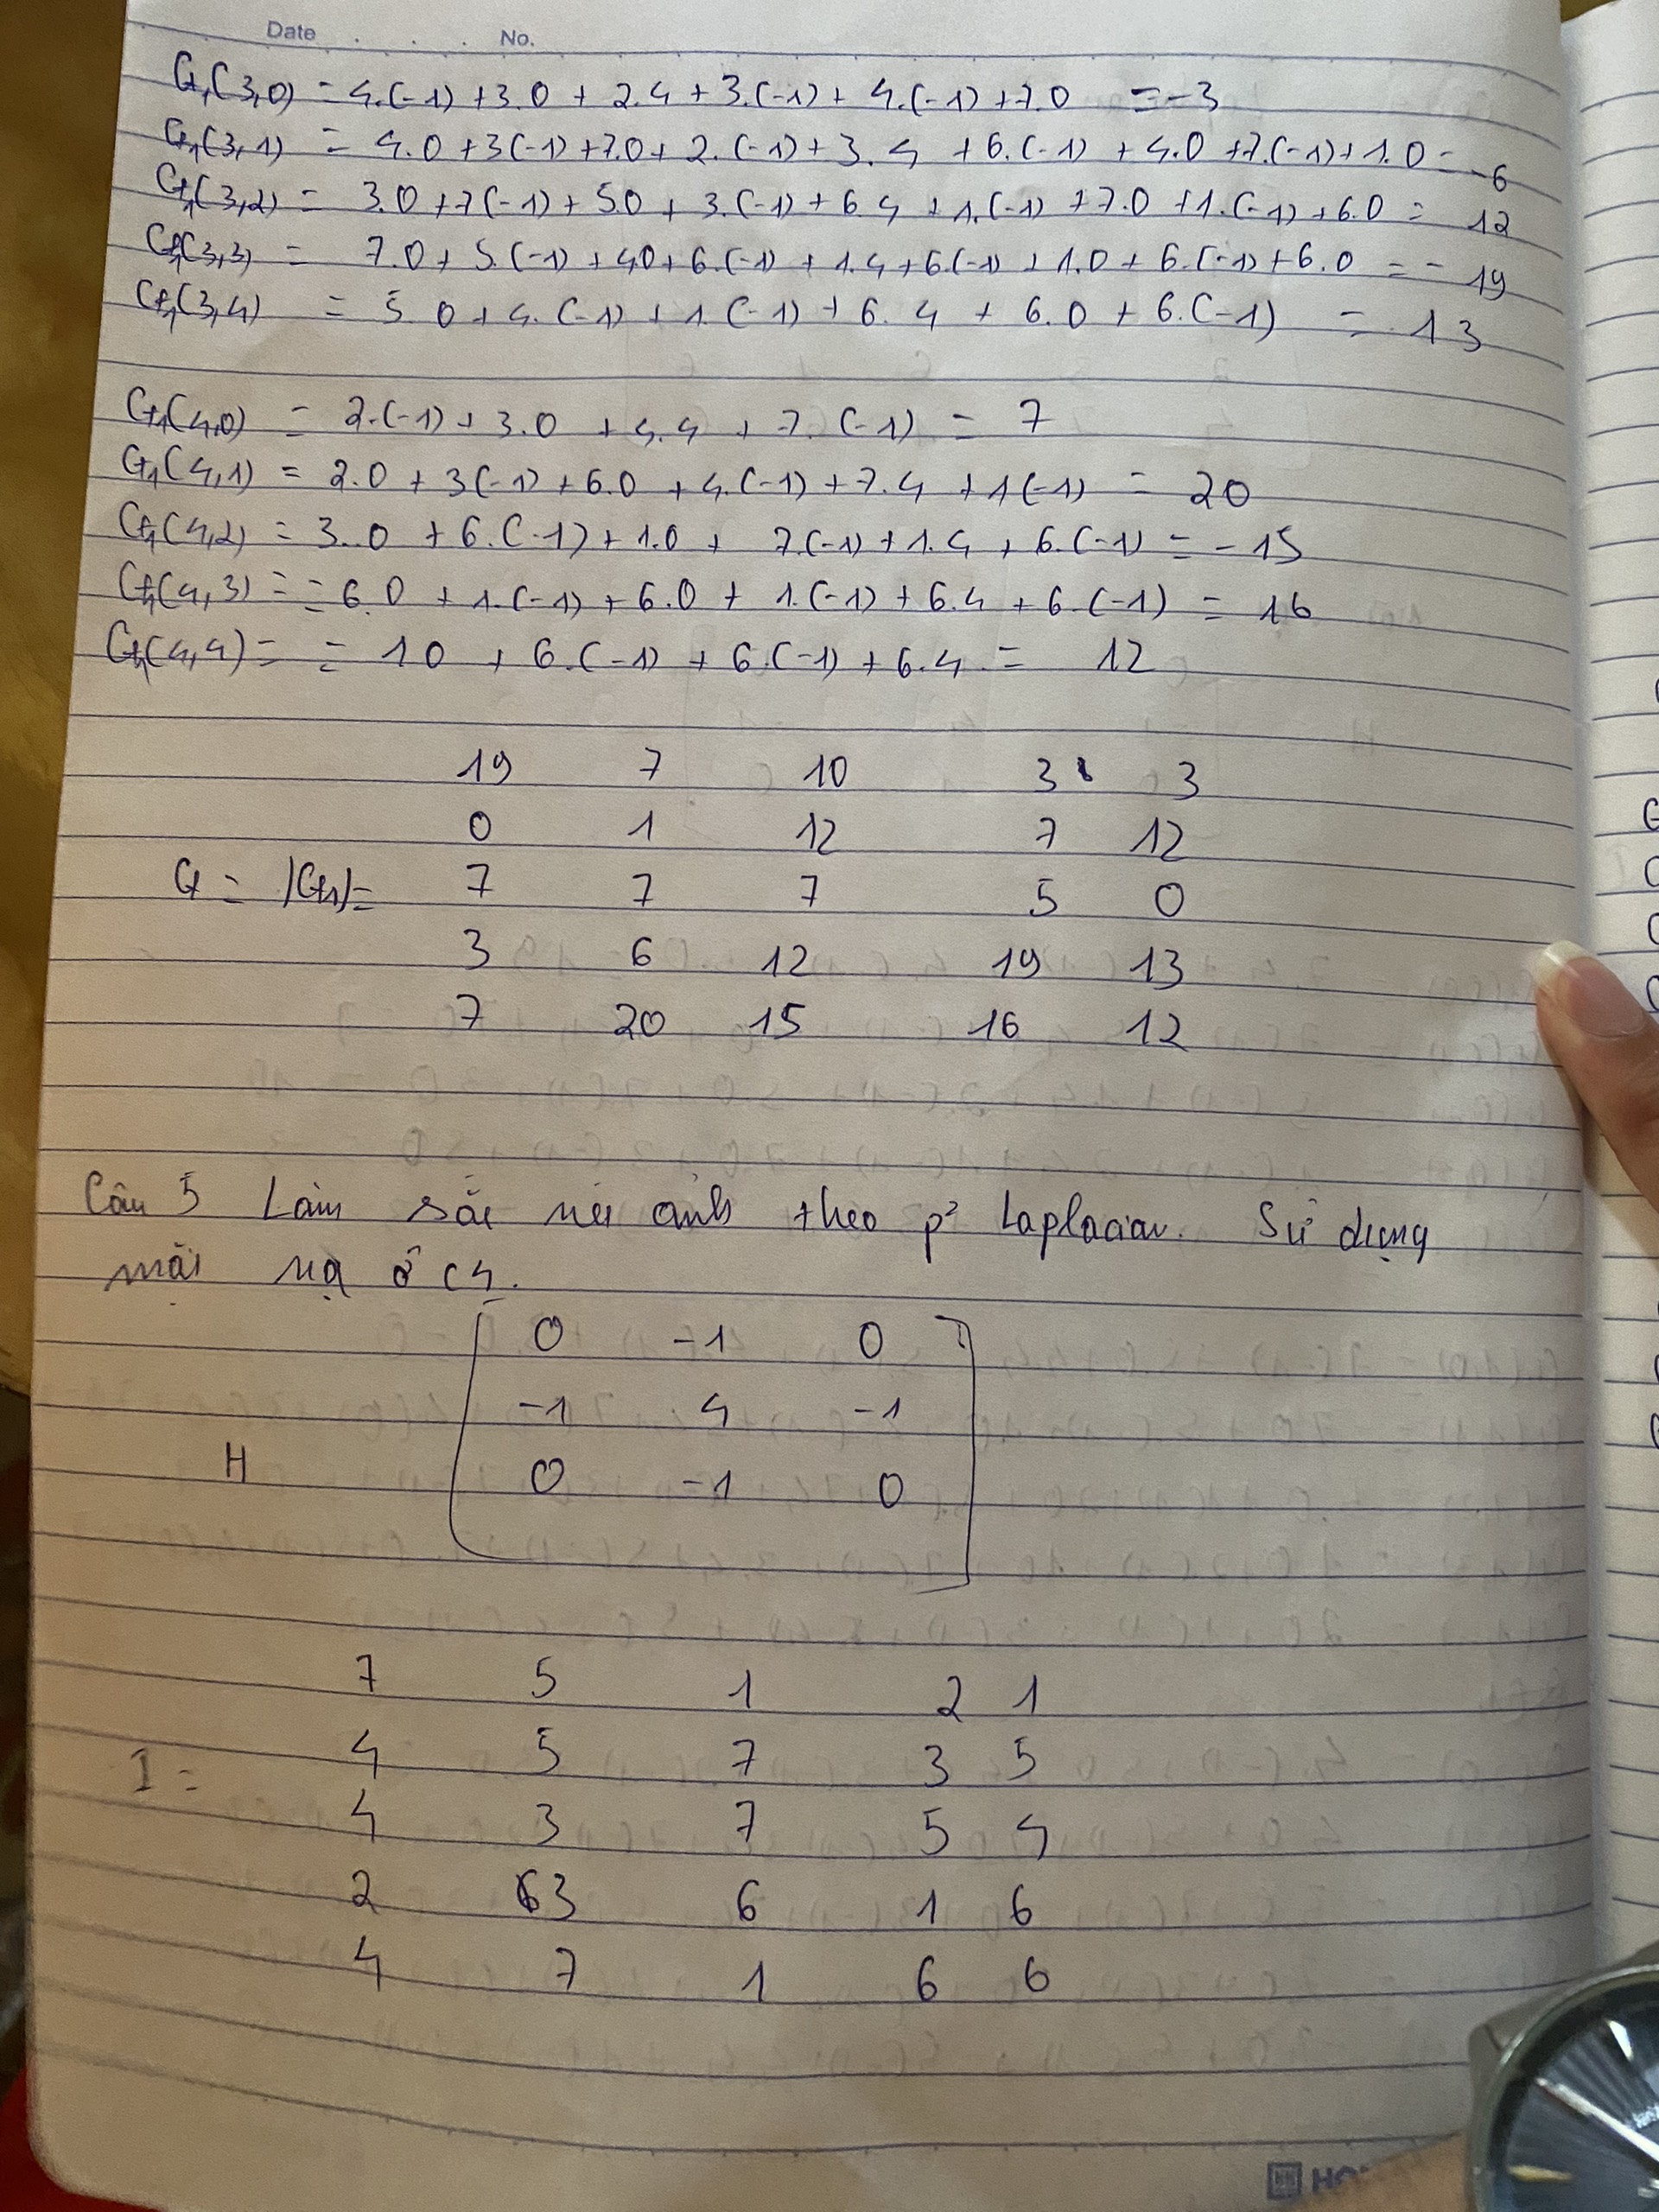 Date . . . . No.
G₁(3,0) = 4.(-1) + 3.0 + 2.4 + 3.(-1) + 4.(-1) + 7.0 = -3
G₁(3,1) = 4.0 + 3(-1) + 7.0 + 2.(-1) + 3.4 + 6.(-1) + 4.0 + 7.(-1) + 1.0 = -6
G₁(3,2) = 3.0 + 7(-1) + 5.0 + 3.(-1) + 6.4 + 1.(-1) + 7.0 + 1.(-1) + 6.0 = 12
G₁(3,3) = 7.0 + 5.(-1) + 4.0 + 6.(-1) + 1.4 + 6.(-1) + 1.0 + 6.(-1) + 6.0 = -19
G₁(3,4) = 5 0 + 4.(-1) + 1.(-1) + 6.4 + 6.0 + 6.(-1) = 13
G₁(4,0) = 2.(-1) + 3.0 + 4.4 + 7.(-1) = 7
G₁(4,1) = 2.0 + 3(-1) + 6.0 + 4.(-1) + 7.4 + 1(-1) = 20
G₁(4,2) = 3.0 + 6.(-1) + 1.0 + 7.(-1) + 1.4 + 6.(-1) = -15
G₁(4,3) = = 6.0 + 1.(-1) + 6.0 + 1.(-1) + 6.4 + 6.(-1) = 16
G₁(4,4) = = 1 0 + 6.(-1) + 6.(-1) + 6.4 = 12
19 7 10 3 3
0 1 12 7 12
G = |G₁| = 7 7 7 5 0
3 6 12 19 13
7 20 15 16 12
Câu 5 Làm sắc nét ảnh theo p² Laplacian. Sử dụng
mặt nạ ở C4.
0 -1 0
-1 4 -1
H 0 -1 0
7 5 1 2 1
I = 4 5 7 3 5
4 3 7 5 4
2 3 6 1 6
4 7 1 6 6